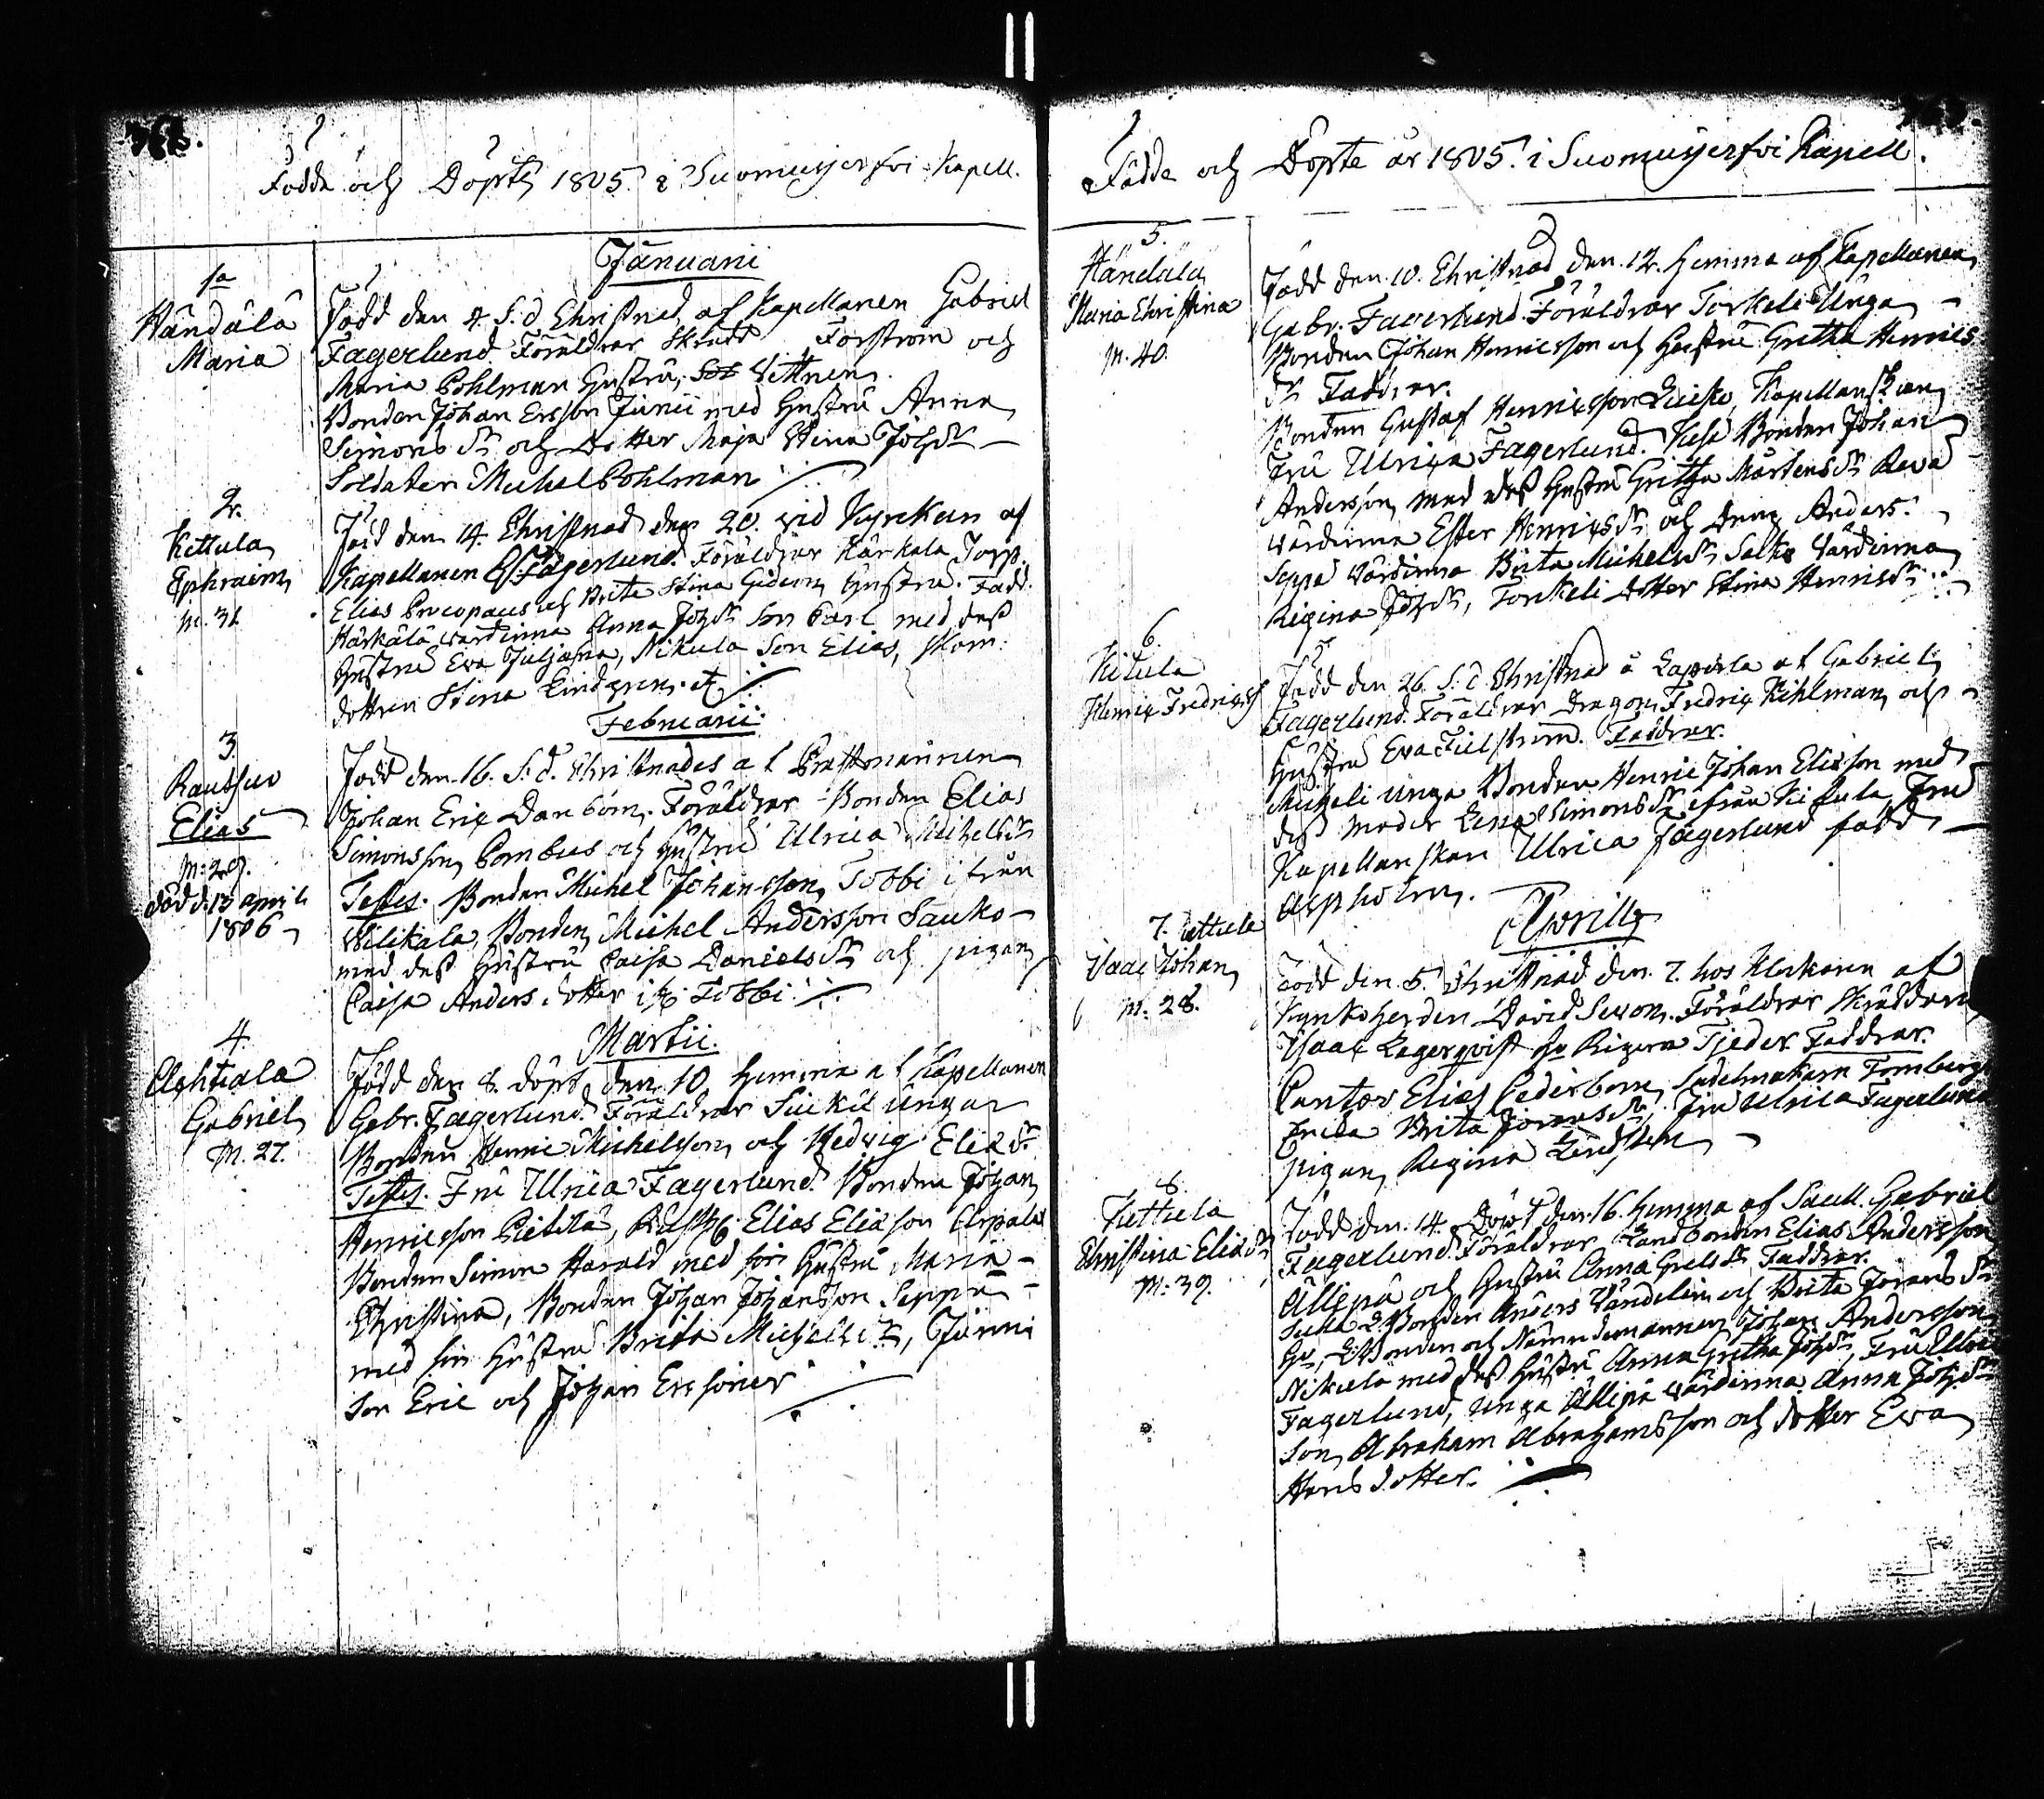 Födde och Döpte 1805. i Suomusjerfvi Kapell.
Januarii
1.
Händälä
Maria
Född den 4. S. d. Christnad af Kapellanen Gabriel
Fagerlund Föräldrar Skradd Forström och
Maria Pohlman hustru, Vittnen.
Bonden Johan Ersson Junii med hustru Anna
Simons dr och Dotter Maja Stina Johsdr
Soldaten Michel Pohlman
2.
Kettula
Ephraim
M. 31.
Född den 14. Christnad den 20. vid Kyrkan af
Kapellanen G Fagerlund. Föräldrar Härkälä Torp.
Elias Procopaeus och Brita Stina Gideon hustru. Fadd.
Härkälä värdinna Anna Johsdr Son Carl med dess
hustru Eva Juliana, Nikula Son Elias, Skom:
dottren Stina Lindgren.
Februarii
3.
Elias
M: 29.
död d. 13 april
1806
Född den 16. S. d. Christnades af Prestmannen
Johan Eric Danbom. Föräldrar Bonden Elias
Simonsson Pombus och hustru Ulrica Michelsdr
Testes. Bonden Michel Johansson Tobbi ifrån
Wilikala, Bonden Michel Andersson Sauko
med dess hustru Caisa Danielsdr och pigan
Caisa Andersdotter Tobbi
Martii.
4.
Ahtiala
Gabriel
M. 27.
Född den 8. döpt den 10. hemma af Kapellanen
Gebr. Fagerlund. Föräldrar Suckil unga
Bonden Henric Michelsson och Hedvig Eliædr.
Testes. Fru Ulrica Fagerlund Bonden Johan
Henricsson Pietilä, Elias Eliæson Arpala
Bonden Simon Harald med sin hustru Maria
Christina, Bonden Johan Johansson Seppä
med sin hustru Brita Michelsdr, Junni
Son Eric och Johan Erssoner
Födde och Döpte år 1805. i Suomusjerfvi Kapell.
5.
Händälä
Maria Christina
M. 40.
Född den 10. Christnad den 12. hemma af Kapellanen
Gabr. Fagerlund Föräldrar Torkeli Unga
Bonden Johan Henricsson och hustru Gretha Henrics
dr Faddrar.
Bonden Gustaf Henricsson Laiske, Kapellanskan
Fru Ulrica Fagerlund. Bonden Johan
Andersson med dess hustru Gretha Mårtensdr
värdinna Ester Henricsdr och Dreng Anders.
Seppä värdinna Brita Michelsdr Salko värdinna
Regina Johsdr, Torkeli dotter Stina Henricsdr
6.
Kitula
Henric Fredricss
Född den 26. S. d. Christnad å Laperla af Gabriel
Fagerlund. Föräldrar Dragon Fredric Kihlman och
hustru Eva Fielström. Faddrar.
Mickeli unga Bonden Henric Johan Eliæson med
dess moder Lena Simonsdr ifrån Kitula, Fru
Kapellanskan Ulrica Fagerlund född
Aspholm.
Aprilly
7. Kettula
Isaac Johan
M. 28.
Född den 5. Christnad den 7. hos Klockaren af
Kyrkoherden David Sevon. Föräldrar Skräddaren
Isaac Lagerqvist Regina Tjeder. Faddrar.
Cantor Elias Cederbom, Sadelmakarn Fornbergs
Enka Brita Joransdr, Fru Ulrica Fagerlund
pigan Regina Lindsten
8.
Kettula
Christina Eliædr
M. 39.
Född den 14. Döpt den 16. hemma af Sacell. Gabriel
Fagerlund. Föräldrar Landbonden Elias Andersson
Ällipä och hustru Anna Grelsdr. Faddrar.
Bonden Anders Vändelin och Brita Joransdr
Bonden och Nämndemannen Johan Andersson
Nikula med dess hustru Anna Gretha Johsdr, Fru Ulrica
Fagerlund, unga Ällipä värdinna Anna Johsdr
Son Abraham Abrahamsson och dotter Eva
Hansdotter.